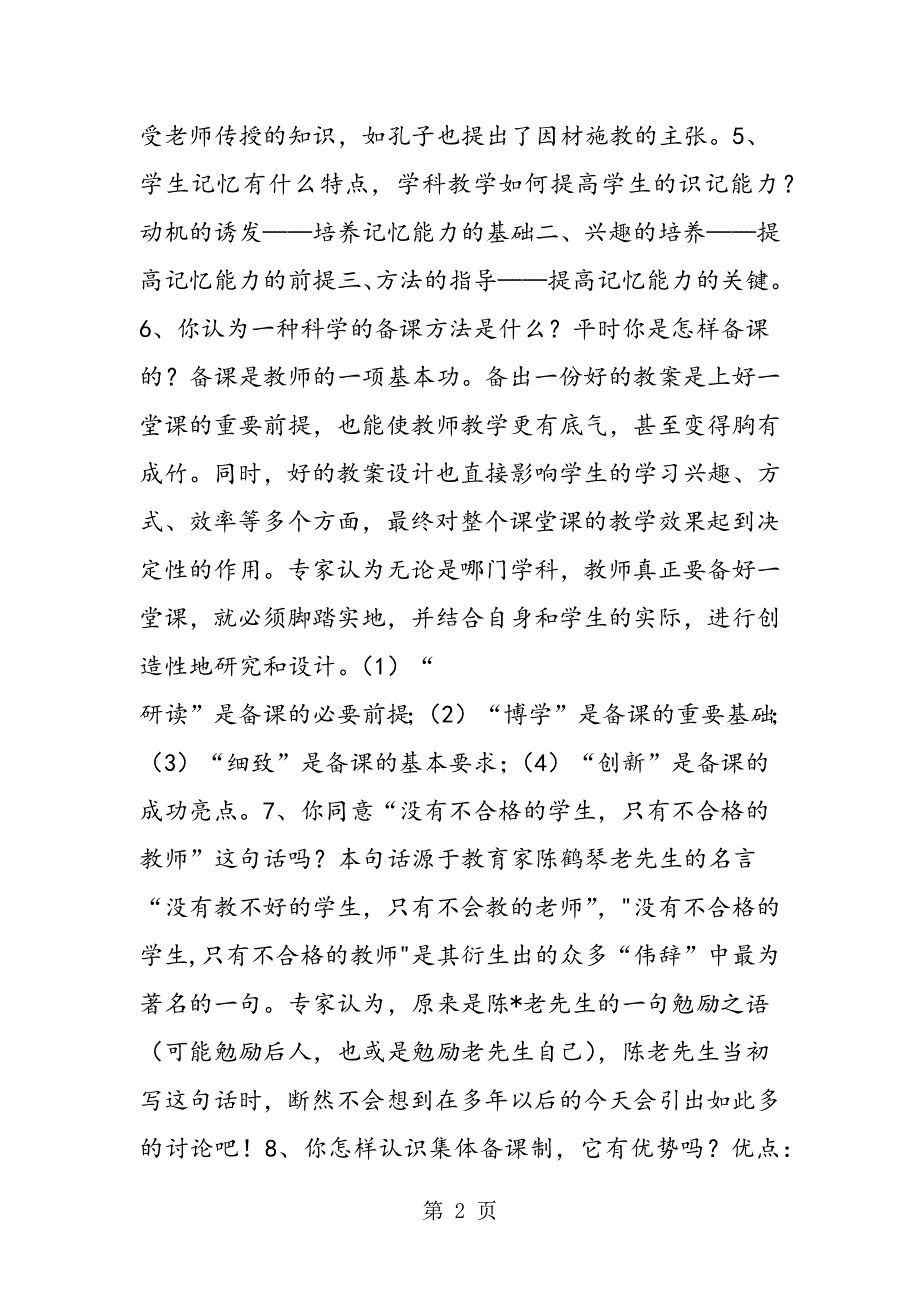 受老师传授的知识，如孔子也提出了因材施教的主张。5、
学生记忆有什么特点，学科教学如何提高学生的识记能力？
动机的诱发——培养记忆能力的基础二、兴趣的培养——提
高记忆能力的前提三、方法的指导——提高记忆能力的关键。
6、你认为一种科学的备课方法是什么？平时你是怎样备课
的？备课是教师的一项基本功。备出一份好的教案是上好一
堂课的重要前提，也能使教师教学更有底气，甚至变得胸有
成竹。同时，好的教案设计也直接影响学生的学习兴趣、方
式、效率等多个方面，最终对整个课堂课的教学效果起到决
定性的作用。专家认为无论是哪门学科，教师真正要备好一
堂课，就必须脚踏实地，并结合自身和学生的实际，进行创
造性地研究和设计。（1）“
研读”是备课的必要前提；（2）“博学”是备课的重要基础；
（3）“细致”是备课的基本要求；（4）“创新”是备课的
成功亮点。7、你同意“没有不合格的学生，只有不合格的
教师”这句话吗？本句话源于教育家陈鹤琴老先生的名言
“没有教不好的学生，只有不会教的老师”，"没有不合格的
学生,只有不合格的教师"是其衍生出的众多“伟辞”中最为
著名的一句。专家认为，原来是陈*老先生的一句勉励之语
（可能勉励后人，也或是勉励老先生自己），陈老先生当初
写这句话时，断然不会想到在多年以后的今天会引出如此多
的讨论吧！8、你怎样认识集体备课制，它有优势吗？优点：
第 2 页